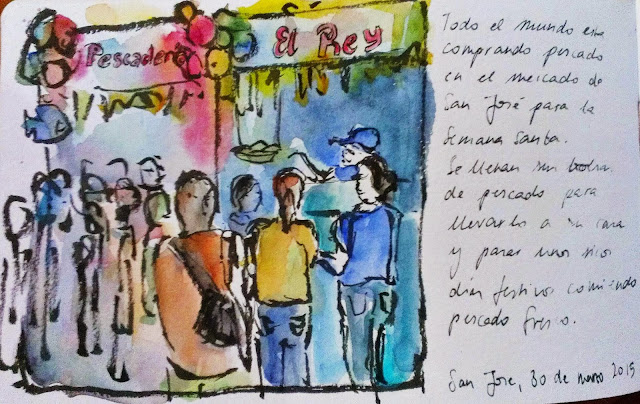 Pescadería
El Rey
Todo el mundo esta
comprando pescado
en el mercado de
San José para la
Semana Santa.
Se llevan su bolsa
de pescado para
llevarlo a su casa
y pasar unos ricos
días festivos comiendo
pescado fresco.
San Jose, 30 de marzo 2015